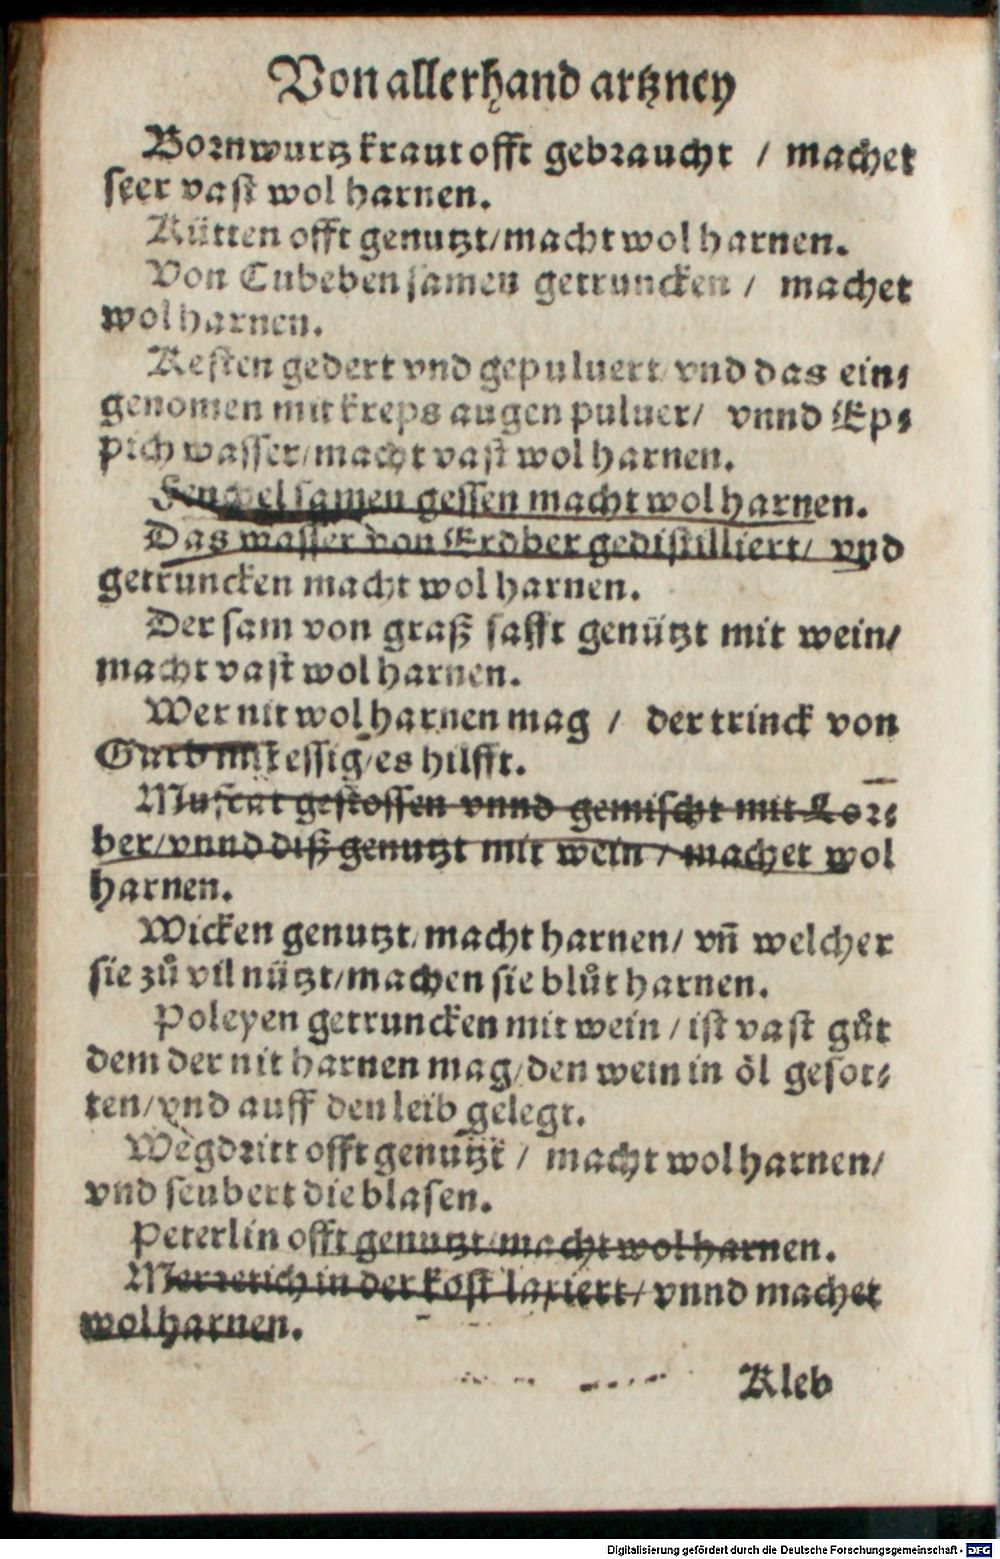 Von allerhand artzney
Bornwurtz kraut offt gebraucht / machet
seer vast wol harnen.
Kütten offt genutzt/macht wol harnen.
Von Cubeben samen getruncken / machet
wol harnen.
Kesten gedert vnd gepuluert/ vnd das ein⸗
genomen mit kreps augen puluer/ vnnd Ep⸗
pich wasser/macht vast wol harnen.
Fenchel samen gessen macht wol harnen.
Das wasser von Erdber gedistilliert/ vnd
getruncken macht wol harnen.
Der sam von graß safft genützt mit wein/
macht vast wol harnen.
Wer nit wol harnen mag / der trinck von
mit essig/es hilfft.
Muscat gestossen vnnd gemischt mit Lor⸗
ber/vnnd diß genutzt mit wein / machet wol
harnen.
Wicken genutzt/macht harnen/ vñ welcher
sie zů vil nützt/machen sie blůt harnen.
Poleyen getruncken mit wein / ist vast gůt
dem der nit harnen mag/den wein in öl gesot⸗
ten/vnd auff den leib gelegt.
Wegdritt offt genutzt / macht wol harnen/
vnd seubert die blasen.
Peterlin offt genutzt/macht wol harnen.
Merretich in der kost laxiert/ vnnd machet
wol harnen.
Kleb
Digitalisierung gefördert durch die Deutsche Forschungsgemeinschaft - DFG